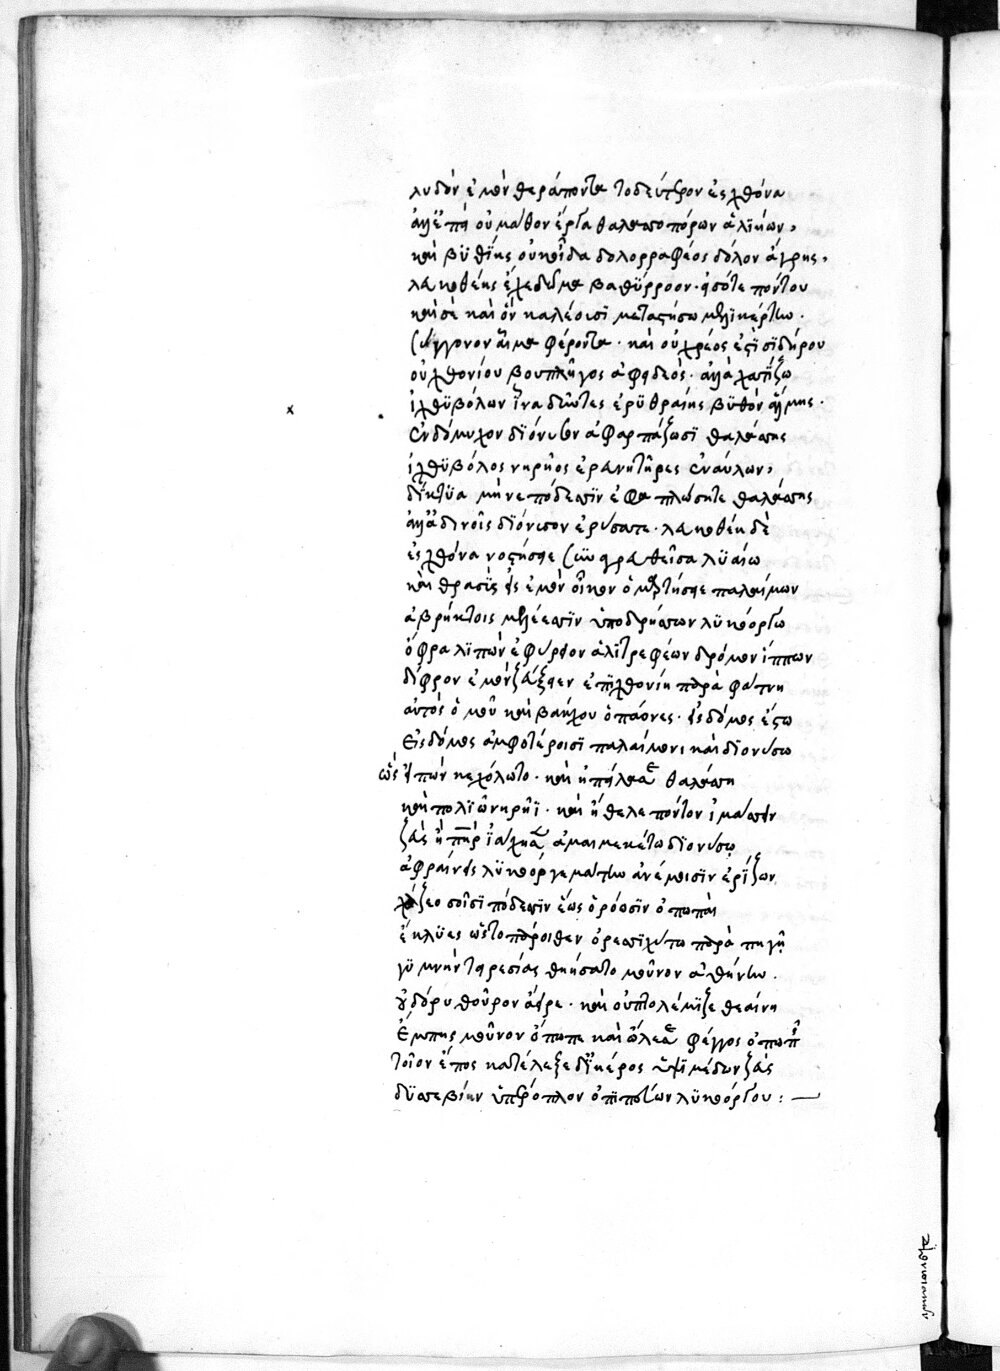 λυδὸν ἐμὸν θεράποντα τοδεύτερον ἐς χθόνα
ἀλλ' ἐπεὶ οὐ μάθον ἔργα θαλασσοπόρων ἁλιήων,
καὶ βυθίης οὐκ οἶδα δολορραφέος δόλον ἄγρης,
λευκοθέης ἔχε δεῖμα βαθύρροον. εἰσότε πόντου
καὶ σὲ καὶ ὃν καλέουσι μεταστήσω μελικέρτην.
σύγγονον αἷμα φέροντα. καὶ οὐ χρέος ἐστὶ σιδήρου
οὐ χθονίου βουπλῆγος ἀφειδέος. ἀλλὰ χαλέξω
ἰχθυβόλων ἵνα δύντες ἐρυθραίης βυθὸν ἅλμης.
ἐνδόμυχον διόνυσον ἀφαρπάξωσι θαλάσσης
ἰχθυβόλοι νηρῆος ἐρευνητῆρες ἐναύλων,
δίκτυα μὴ νεπόδεσσιν ἐφαπλώσητε θαλάσσης
ἀλλὰ λίνοις διόνυσον ἐρύσσατε. λευκοθέη δὲ
ἐς χθόνα νοστήσειε σὺν ἀγρευθεῖσα λυαίῳ
καὶ θρασὺς εἰς ἐμὸν οἶκον ὁμαρτήσειε παλαίμων
ἀβρέκτοις μελέεσσιν ὑποδρήσσων λυκοόργῳ
ὄφρα λιπὼν ἐφύγειον ἁλιτρεφέων δρόμον ἵππων
δίφρον ἐμὸν ζεύξειεν ἐπὶ χθονίῃ παρὰ φάτνῃ
αὐτὸς ὁμοῦ καὶ βάκχου ὀπάονες. εἷς δόμος ἔστω
Εἷς δόμος ἀμφοτέροισι παλαίμονι καὶ διονύσῳ
ὣς εἰπὼν κεχόλωτο. καὶ ἠπείλησε θαλάσσῃ
καὶ πολιῷ νηρῆι. καὶ ἤθελε πόντον ἱμάσσειν
ζεὺς πατὴρ ἰάχησεν ἀμαιμακέτῳ διονύσῳ
ἀφραίνεις λυκόοργε μάτην ἀνέμοισιν ἐρίζων
χάζεο σοῖσι πόδεσσιν ἕως ὁρόωσιν ὀπωπαὶ
ἔκλυες ὡς τοπάροιθεν ὀρεσσιχύτῳ παρὰ πηγῇ
γυμνὴν τειρεσίας θηήσατο μοῦνον ἀθήνην.
οὐ δόρυ θοῦρον ἄειρε. καὶ οὐ πτολέμιξε θεαίνῃ
ἐσωπῆς μοῦνον ὄπωπε καὶ ὤλεσε φέγγος ὀπωπῆς
τοῖον ἔπος κατέλεξε δι' ἠέρος ὑψιμέδων ζεὺς
δυσσεβίην ὑπέροπλον ὀπιπτεύων λυκοόργου : —